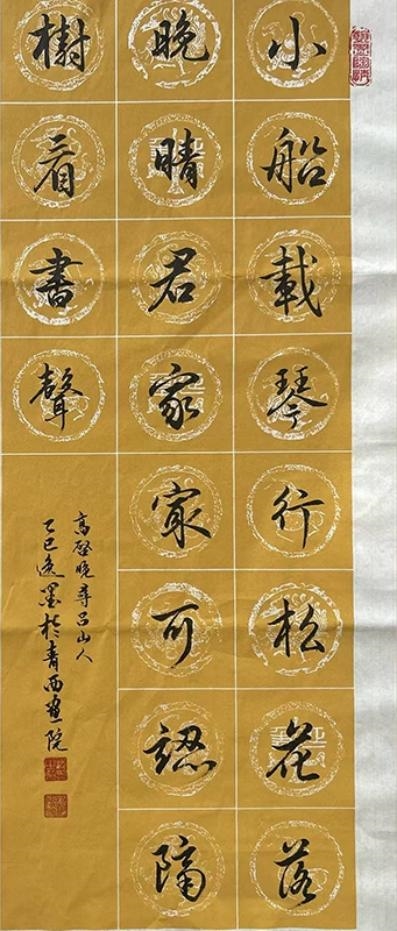 小船載琴行松花落
晚晴君家㝡可認隔
樹看書聲
高啓晚尋呂山人
乙巳逸墨於青西畫院